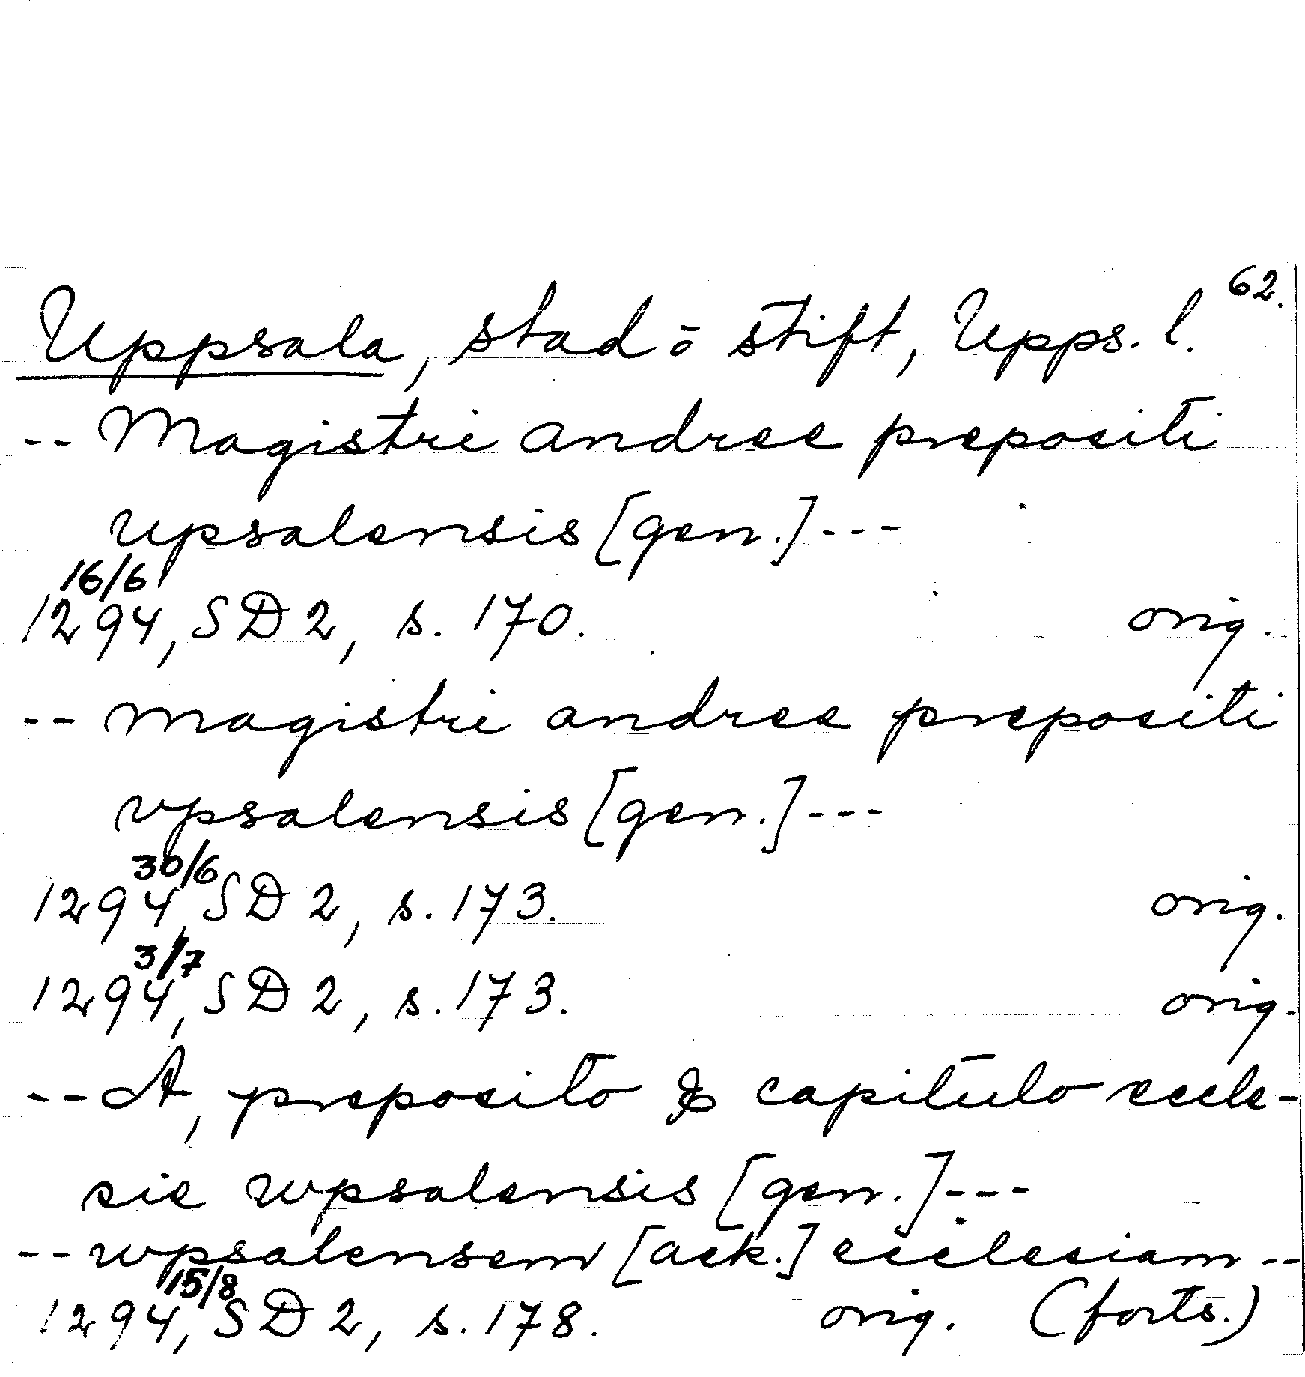 62.
Uppsala, stad o stift, Upps. l.
-- Magistri andree prepositi
upsalensis [gen.] ---
16/6
1294, SD 2, s. 170. orig.
-- magistri andree prepositi
vpsalensis [gen.] ---
30/6
1294, SD 2, s. 173. orig.
3/7
1294, SD 2, s. 173. orig.
-- A, preposito & capitulo eccle-
sie wpsalensis [gen.] ---
-- wpsalensem [ack.] ecclesiam --
15/8
1294, SD 2, s. 178. orig. (forts.)